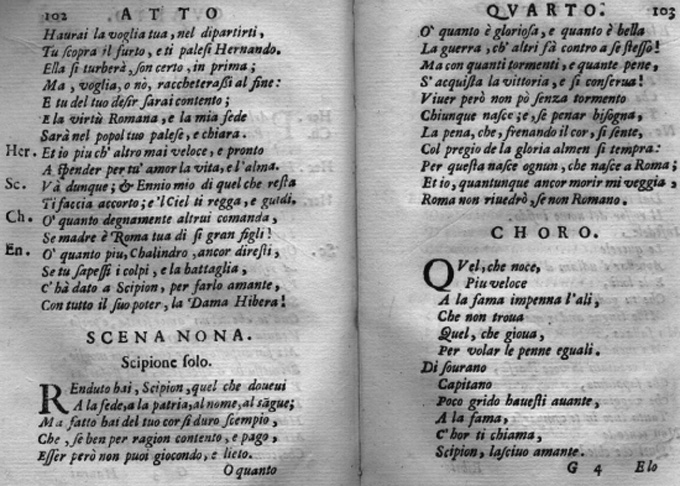 102 ATTO
Haurai la voglia tua, nel dipartirti,
Tu scopra il furto, e ti palesi Hernando.
Ella si turberà, son certo, in prima;
Ma, voglia, o nò, raccheterassi al fine:
E tu del tuo desir sarai contento;
E la virtù Romana, e la mia fede
Sarà nel popol tuo palese, e chiara.
Her. Et io piu ch'altro mai veloce, e pronto
A spender per tu' amor la vita, e l'alma.
Sc. Và dunque; & Ennio mio di quel che resta
Ti faccia accorto; e 'l Ciel ti regga, e guidi.
Ch. O' quanto degnamente altrui comanda,
Se madre è Roma tua di si gran figli!
En. O' quanto piu, Chalindro, ancor diresti,
Se tu sapessi i colpi, e la battaglia,
C'hà dato a Scipion, per farlo amante,
Con tutto il suo poter, la Dama Hibera!
SCENA NONA.
Scipione solo.
REnduto hai, Scipion, quel che doueui
A la fede, a la patria, al nome, al sãgue;
Ma fatto hai del tuo cor sì duro scempio,
Che, se ben per ragion contento, e pago,
Esser però non puoi giocondo, e lieto.
O quanto
QVARTO. 103
O' quanto è gloriosa, e quanto è bella
La guerra, ch'altri fà contro a se stesso!
Ma con quanti tormenti, e quante pene,
S'acquista la vittoria, e si conserua!
Viuer però non pò senza tormento
Chiunque nasce; e, se penar bisogna,
La pena, che, frenando il cor, si sente,
Col pregio de la gloria almen si tempra:
Per questa nasce ognun, che nasce a Roma;
Et io, quantunque ancor morir mi veggia,
Roma non riuedrò, se non Romano.
CHORO.
QVel, che noce,
Piu veloce
A la fama impenna l'ali,
Che non troua
Quel, che gioua,
Per volar le penne eguali.
Di sourano
Capitano
Poco grido hauesti auante,
A la fama,
C'hor ti chiama,
Scipion, lasciuo amante.
G 4 Elo